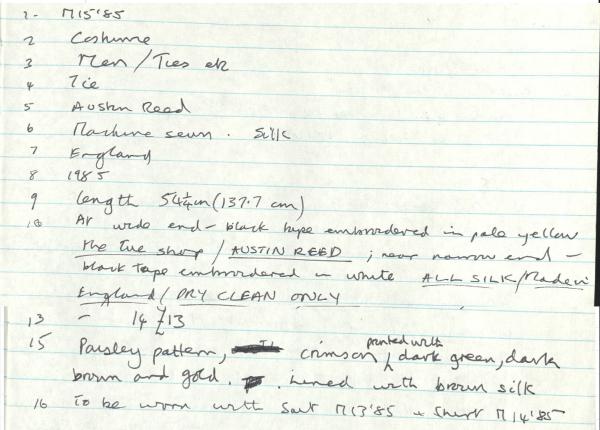 1- M15'85
2 Costume
3 Men / Ties etc
4 Tie
5 Austin Reed
6 Machine sewn. Silk
7 England
8 1985
9 Length 54¼in (137.7 cm)
10 At wide end - black tape embroidered in pale yellow
the tie shop / AUSTIN REED ; near narrow end -
black tape embroidered in white ALL SILK/Made in
England/ DRY CLEAN ONLY
13 - 14 £13
15 Paisley pattern, crimson printed with dark green, dark
brown and gold. Lined with brown silk
16 To be worn with Suit M13'85 + Shirt M14'85